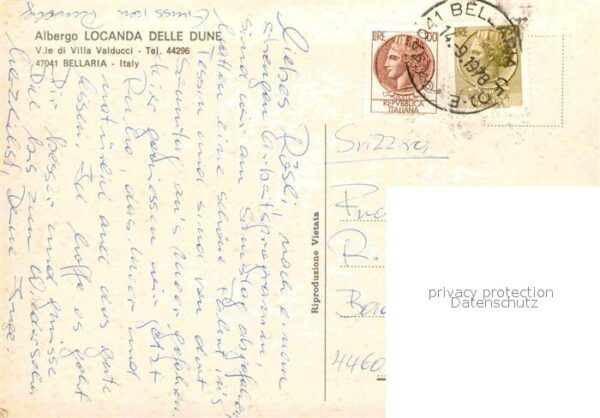 Albergo LOCANDA DELLE DUNE
V.le di Villa Valducci - Tel. 44296
47041 BELLARIA - Italy
Liebes Rösli, nach einem
strengen Arbeitsprogramm
sind wir am Samstag abgefahren,
hatten eine schöne Fahrt ins
Tessin und sind von dort
Sonntag an's Meer gefahren.
Wir geniessen nun jetzt
Ruhe, das Meer und
natürlich auch das gute
Essen. Ich hoffe es geht
Dir besser und grüsse
Dich bis zum Wiedersehn
herzlichst, Deine Inge.
Gruss von
Riproduzione Vietata
LIRE 100
REPVBBLICA
ITALIANA
LIRE
ITALIANA
47041 BELLARIA
14.9.1978
Svizzera
R.
4460
privacy protection
Datenschutz